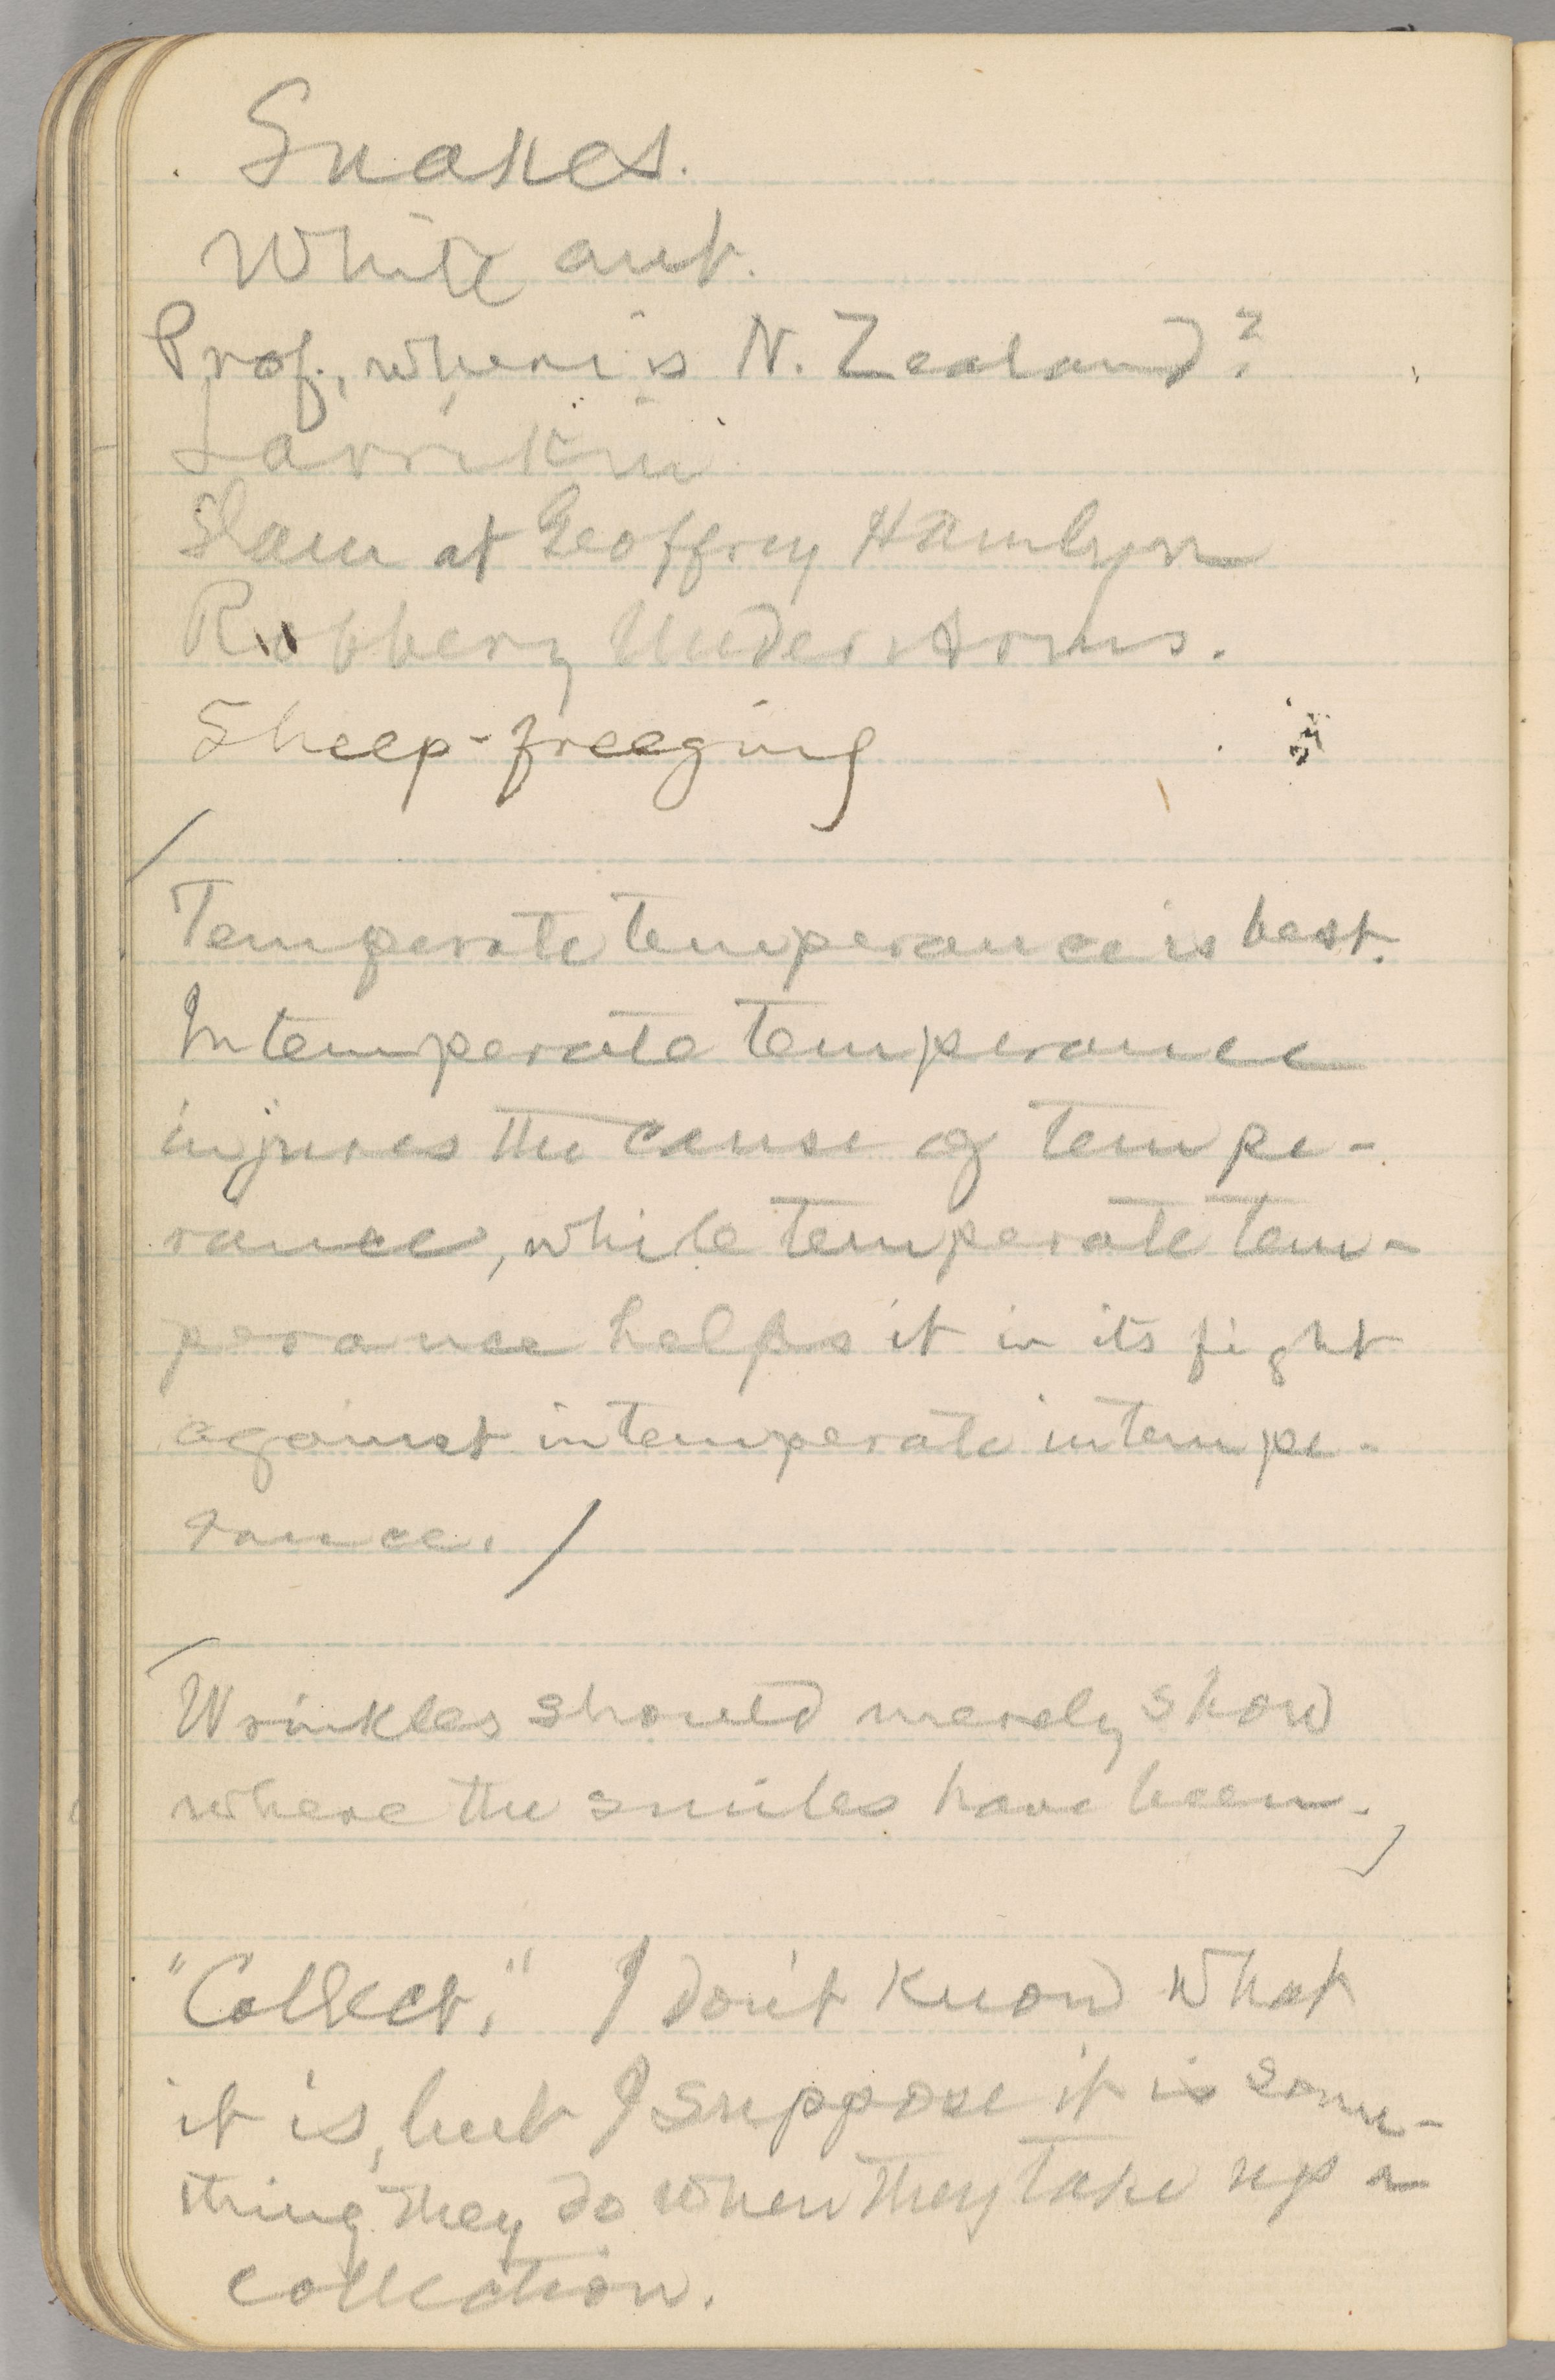 Snakes.
White ant.
Prof., where is N. Zealand?
Larrikin
Slam at Geoffrey Hamlyn
Robbery Under Arms.
Sheep-freezing
/
Temperate temperance is best.
Intemperate temperance
injures the cause of tempe-
rance, while temperate tem-
perance helps it in its fight
against intemperate intempe-
rance. /
/
Wrinkles should merely show
where the smiles have been.
/
"Collect." I don't know what
it is, but I suppose it is some-
thing they do when they take up a
collection.